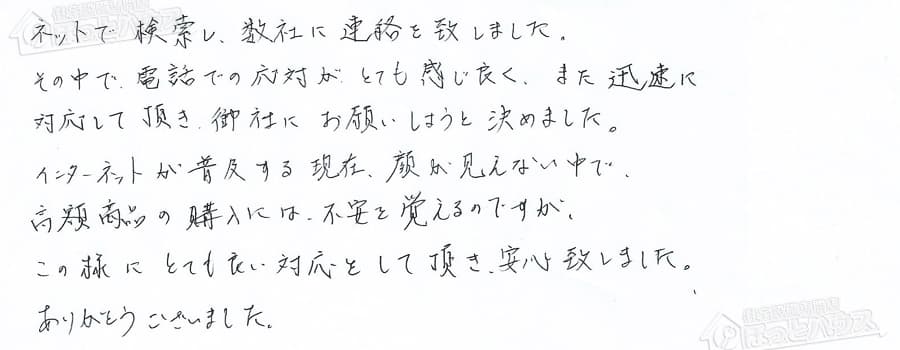 ネットで検索し、数社に連絡を致しました。
その中で、電話での応対が とても感じ良く、また 迅速に
対応して頂き、御社に お願いしようと 決めました。
インターネットが普及する現在、顔が見えない中で、
高額商品の購入には、不安を覚えるのですが、
この様に とても良い対応をして頂き、安心致しました。
ありがとうございました。
ほっとハウス